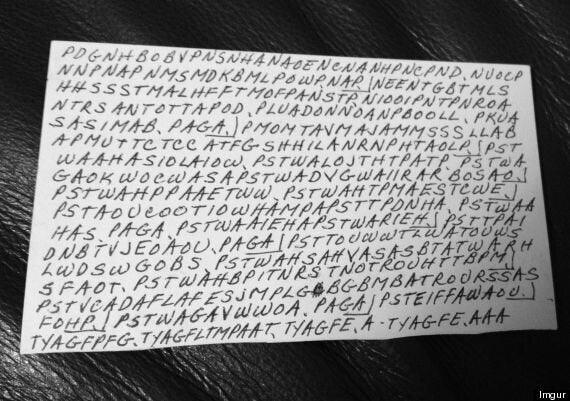 PDGNHBOBVPNSNHANAOENCNANHPNCPND, NUOCP
NNPNAPNMSMDKBMLPOWP,NAR)NEENTGBTMLS
HHSSSTMALHFFTMOFPANSTP NIOOIPNTPNROA
NTRSANTOTTAPOD. PLUADONNOANPBOOLL. PKUA
SASIMAB. PAGA.) PMOMTAVMAJAMMSSSLLAB
APMUTTCTCC ATFGSHHILANRNPHTAOLP.)PST
WAAHASIOLAIOW. PSTWALOJTHTPATP. PSTWA
GAOKWOCWASAPSTWADVGWAIIRAR'BOSAO.)
PSTWAHPPAAETWW. PSTWAHTPMAESTCWE.)
PSTAOUCOOTIOWHAMPAPSTTPDNHA. PSTWAA
HAS PAGA. PSTWAAIEHAPSTWARIEH.)PSTTPAI
DNBTVJEOAOU. PAGA)PSTTOUWWTLWATOUWS
LWDSWGOBS. PSTWAHSAHVASASBTATWARH
SFAOT. PSTWAHBPITNRSTNOTROUHTTBPM)
PSTVCADAFLAFESJMPLG BGBMBATROURSSAS
FOHP.)PSTWAGAVWWOA. PAGA)PSTEIFFAWAOU.)
TYAGFPFG.TYAGFLTMPAAT. TYAGFE. A-TYAGFE. AAA
Imgur